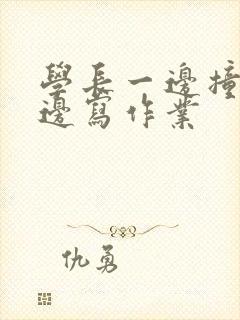 學長一邊撞
邊寫作業
仇勇